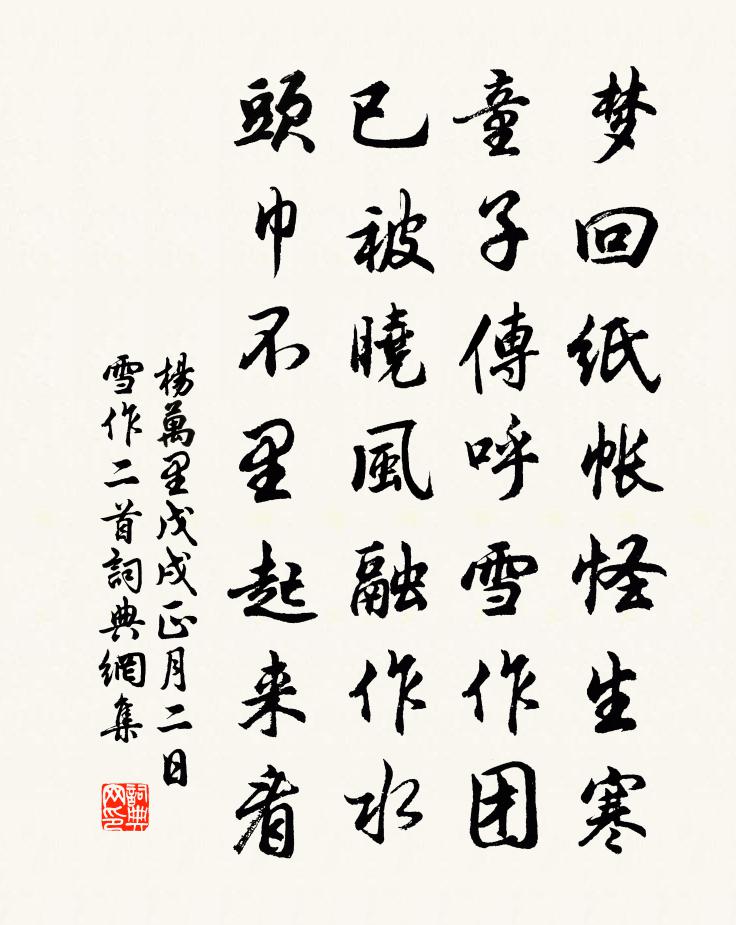 梦回紙帐怪生寒
童子傳呼雪作团
已被曉風融作水
頭巾不里起来看
楊萬里戊戌正月二日
雪作二首詞典網集
詞典网印